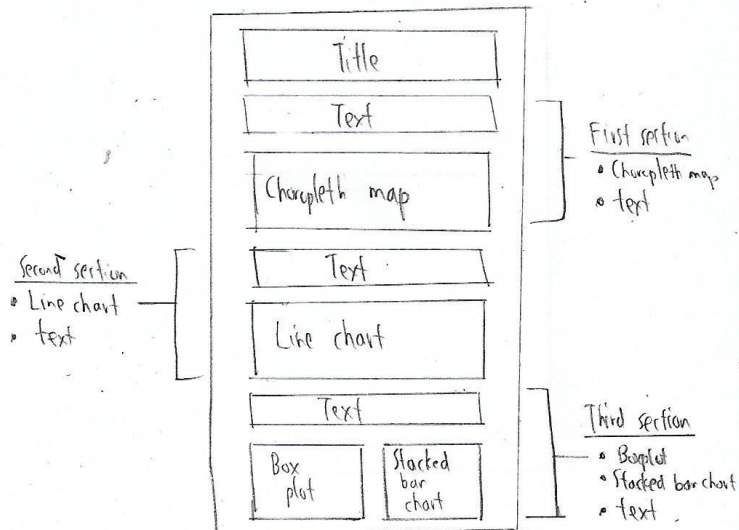 Title
Text
Choropleth map
Text
Line chart
Text
Box
plot
Stacked
bar
chart
First section
• Choropleth map
• text
Second section
• Line chart
• text
Third section
• Boxplot
• Stacked bar chart
• text